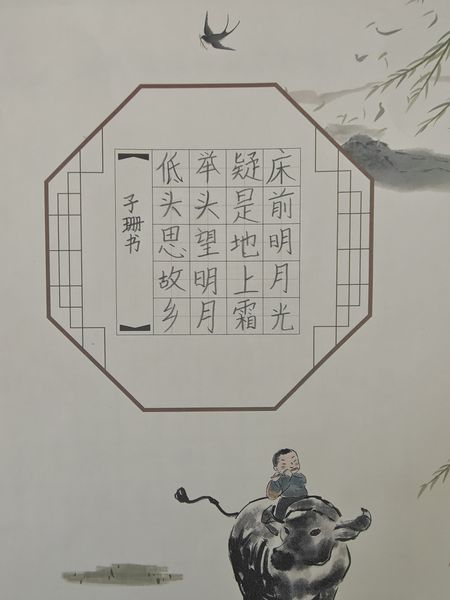 床前明月光
疑是地上霜
举头望明月
低头思故乡
子珊书